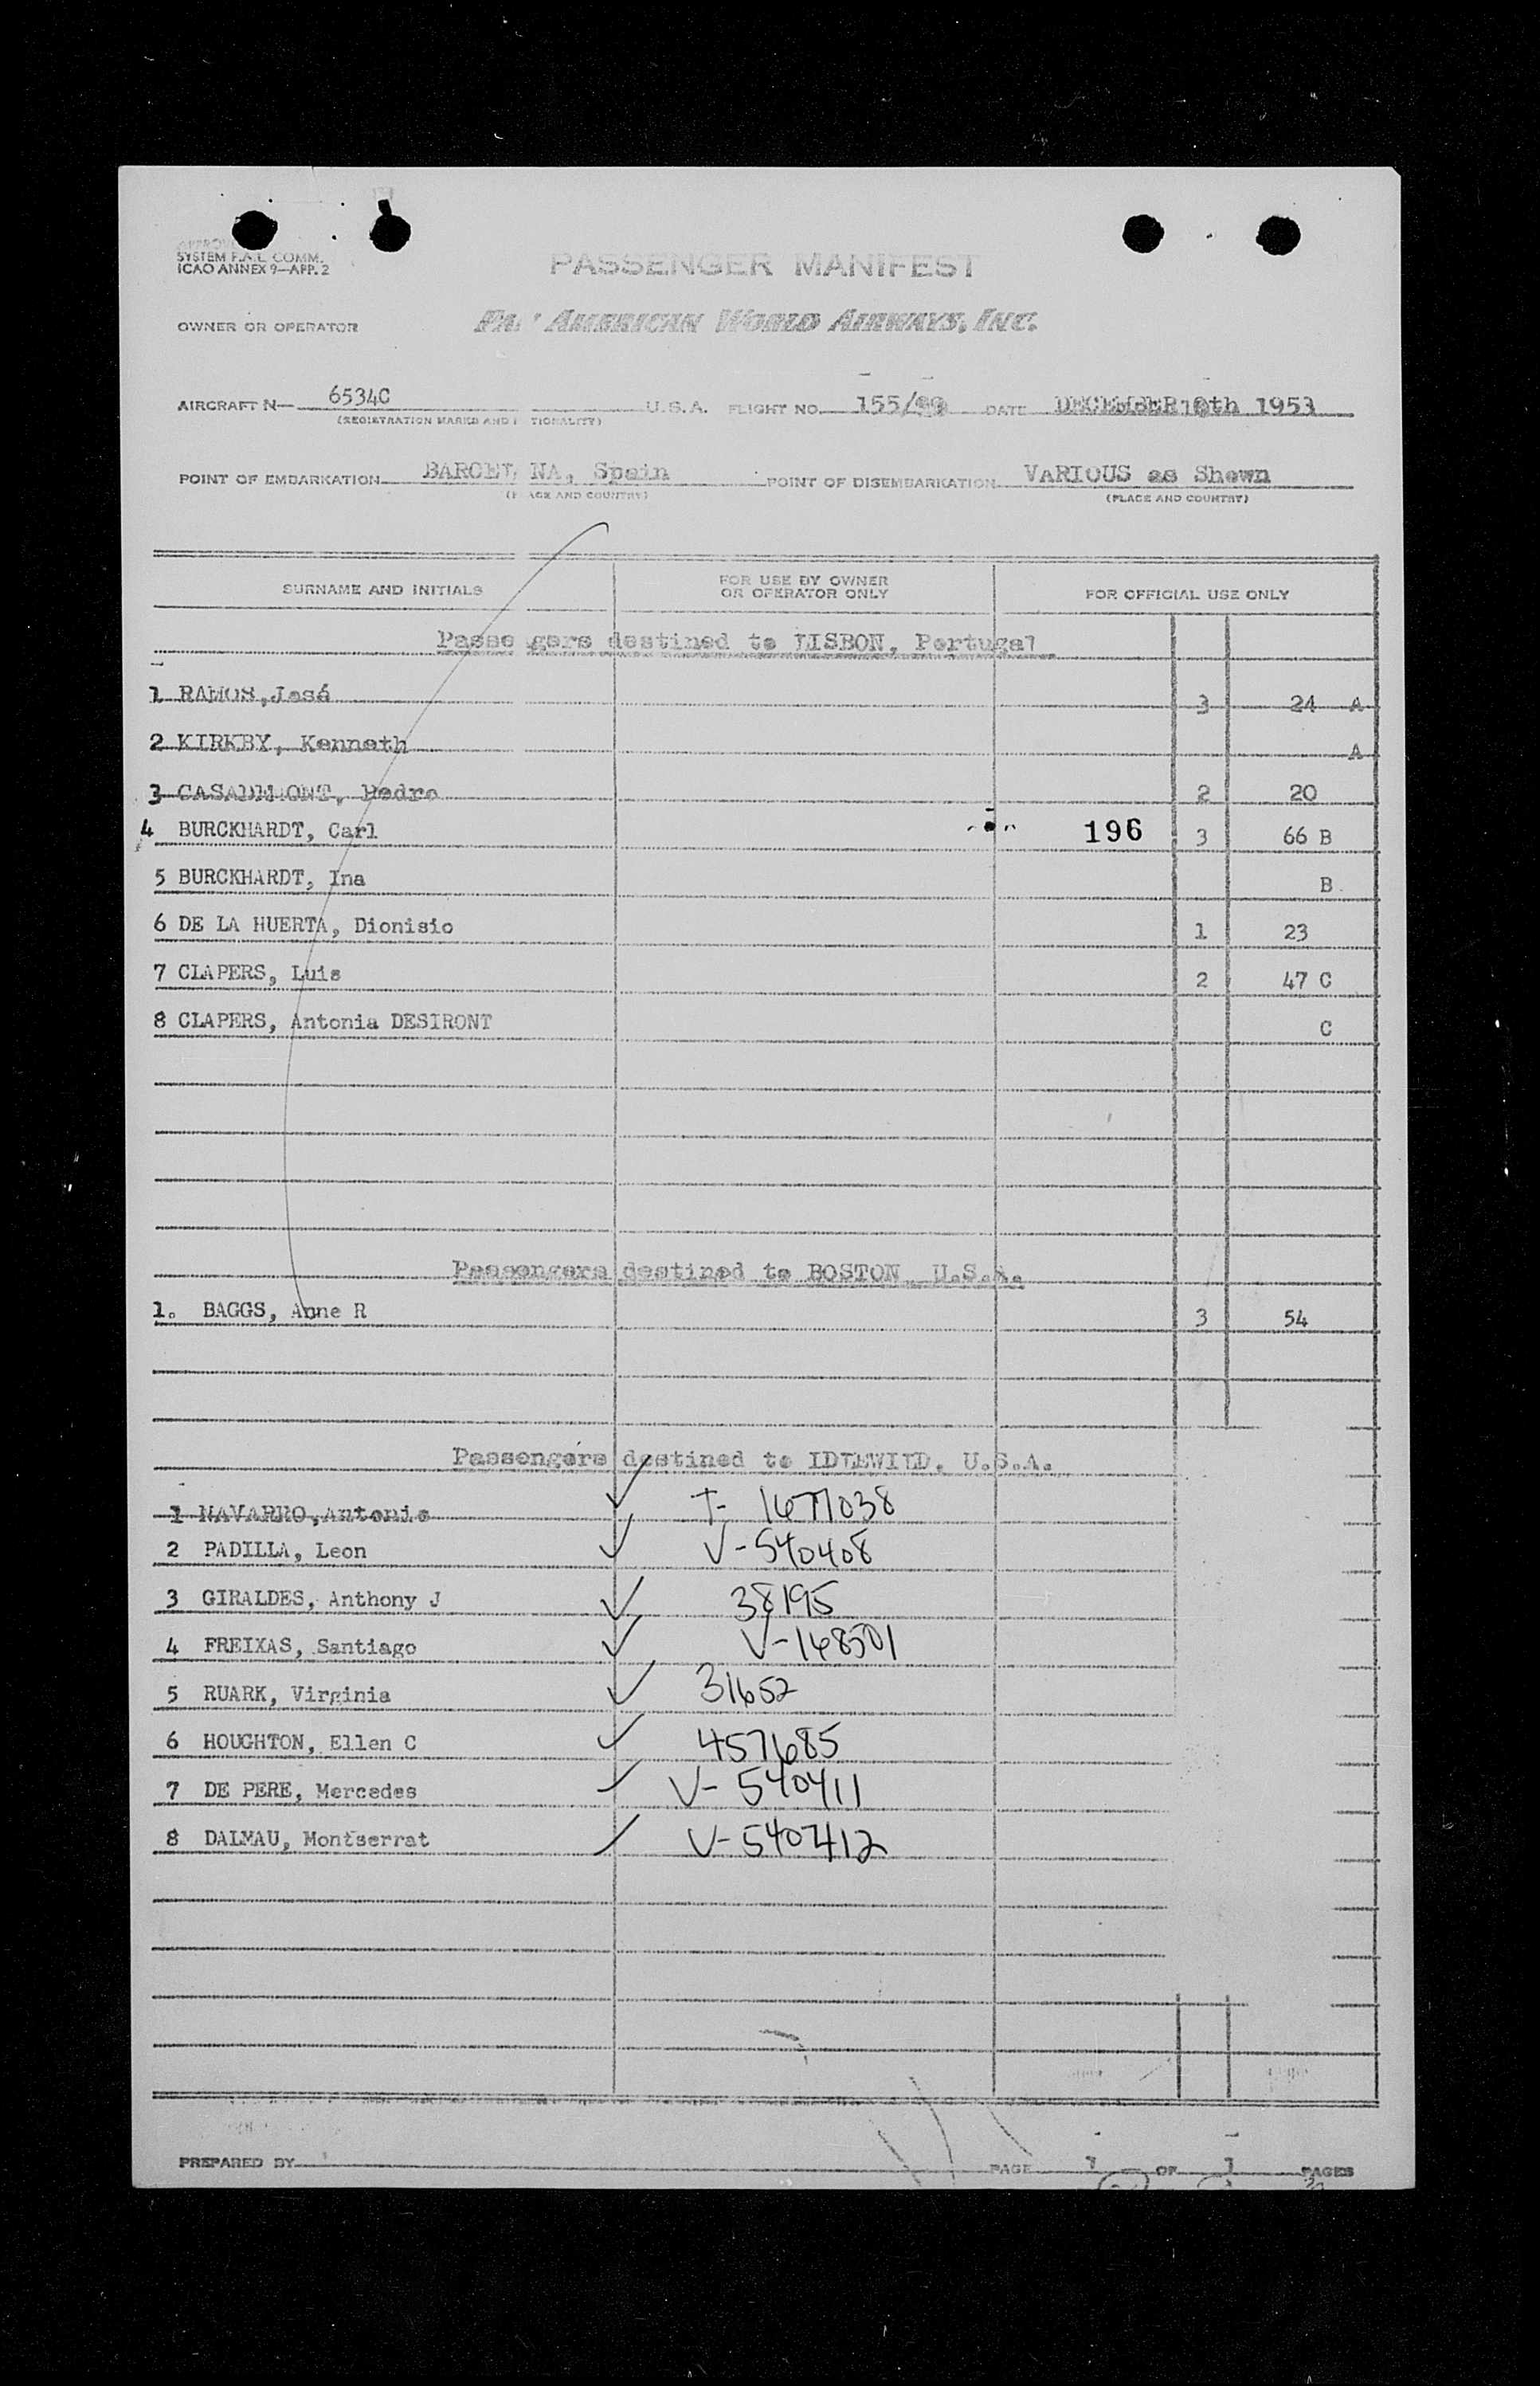 SYSTEM F.A.L. COMM.
ICAO ANNEX 9—APP. 2
PASSENGER MANIFEST
OWNER OR OPERATOR AMERICAN WORLD AIRWAYS, INC.
AIRCRAFT N— 6534C U.S.A. FLIGHT NO. 155/ DATE DECEMBER 1953
(REGISTRATION MARKS AND
POINT OF EMBARKATION Spain POINT OF DISEMBARKATION VARIOUS as Shown
(PLACE AND COUNTRY) (PLACE AND COUNTRY)
SURNAME AND INITIALS FOR USE BY OWNER OR OPERATOR ONLY FOR OFFICIAL USE ONLY
destined to LISBON, Portugal
1 RAMOS, José 3 24 A
2 KIRKBY, Kenneth A
3 Pedro 2 20
4 BURCKHARDT, Carl 196 3 66 B
5 BURCKHARDT, Ina B
6 DE LA HUERTA, Dionisio 1 23
7 CLAPERS, Luis 2 47 C
8 CLAPERS, Antonia DESIRONT C
Passengers destined to BOSTON, U.S.A.
1. BAGGS, Anne R 3 54
Passengers destined to IDLEWILD, U.S.A.
1 NAVARRO, Antonio T- 1677038
2 PADILLA, Leon V-540408
3 GIRALDES, Anthony J 38195
4 FREIXAS, Santiago V-168501
5 RUARK, Virginia 31652
6 HOUGHTON, Ellen C 457685
7 DE PERE, Mercedes V- 540411
8 DALMAU, Montserrat V-540412
PREPARED BY PAGE 1 OF 1 PAGES